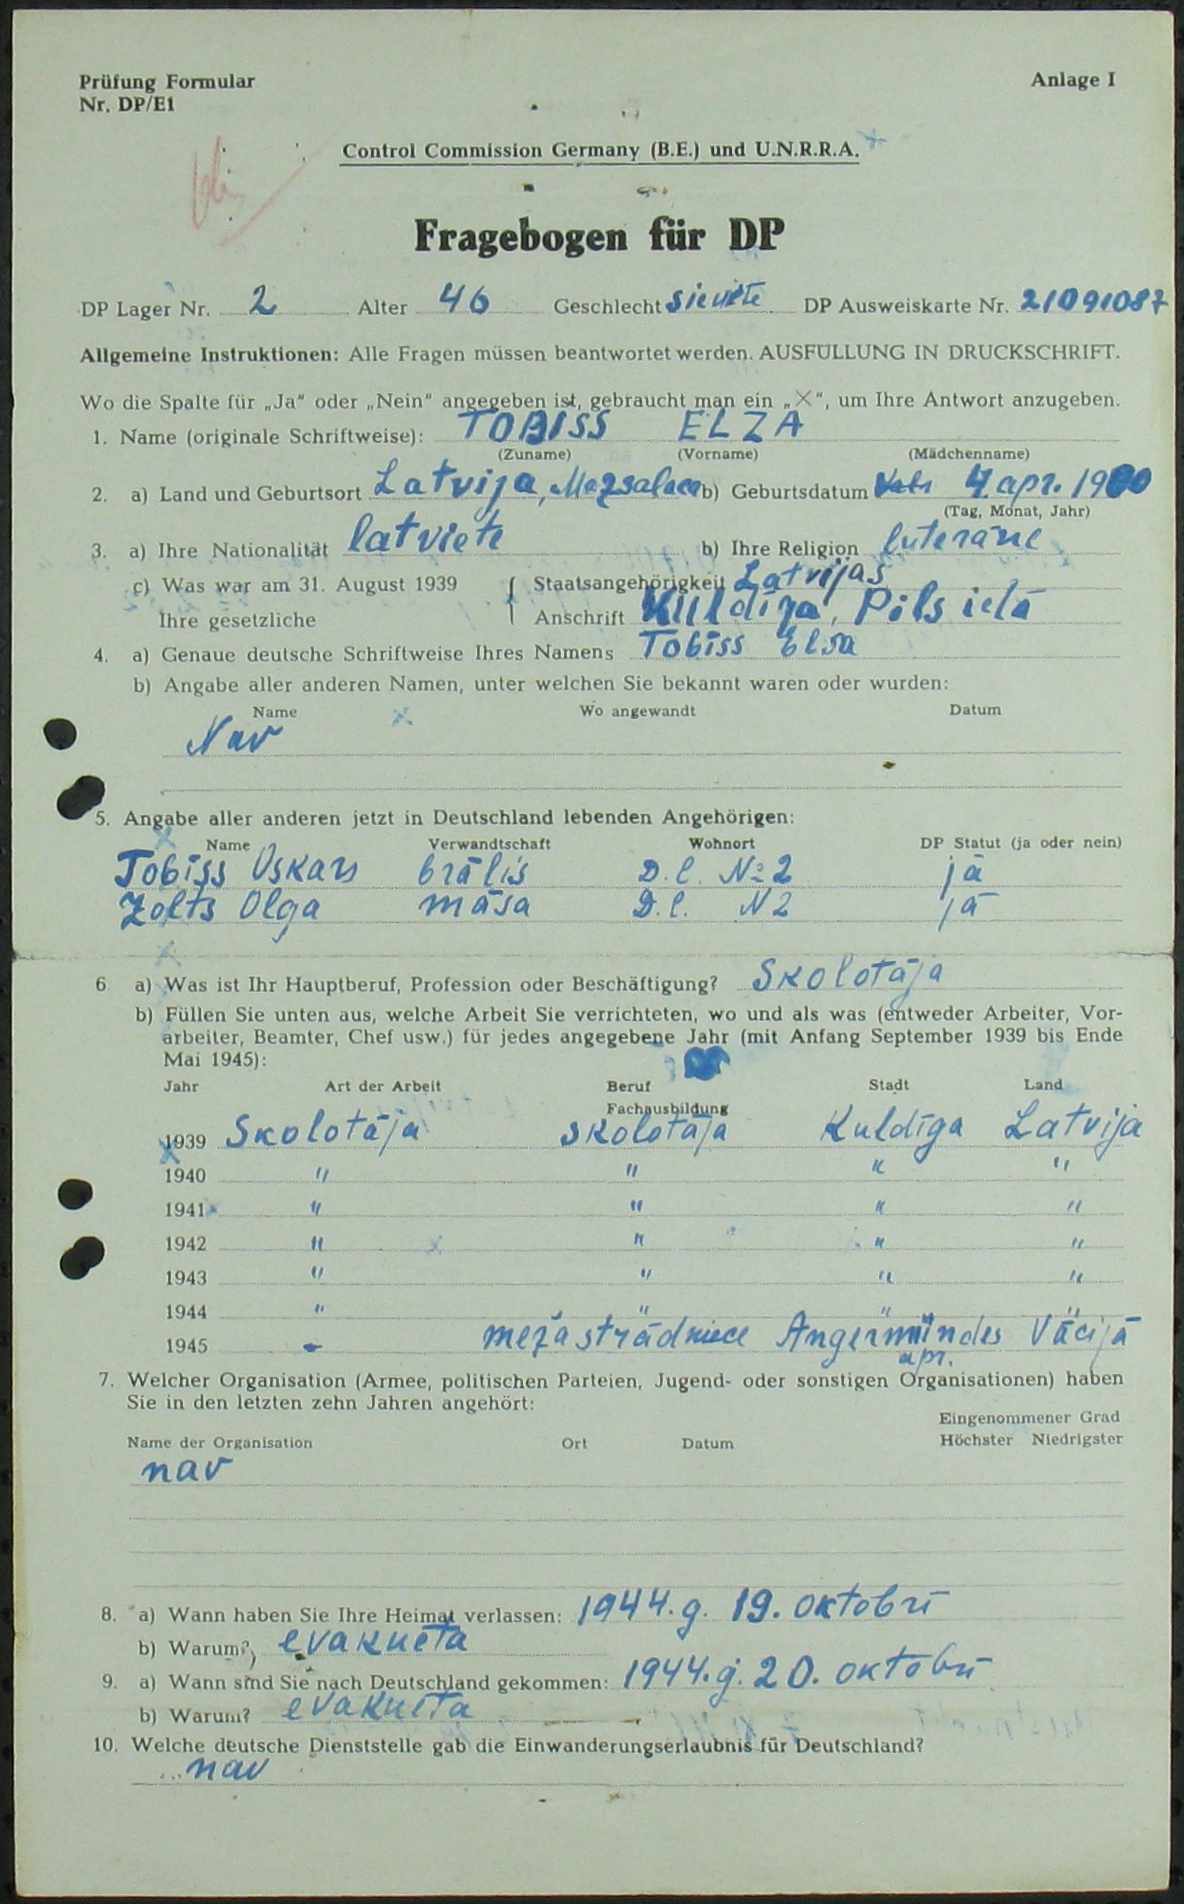 Prüfung Formular Anlage I
Nr. DP/E1
Control Commission Germany (B.E.) und U.N.R.R.A.
Fragebogen für DP
DP Lager Nr. 2 Alter 46 Geschlecht sieviete DP Ausweiskarte Nr. 21091087
Allgemeine Instruktionen: Alle Fragen müssen beantwortet werden. AUSFÜLLUNG IN DRUCKSCHRIFT.
Wo die Spalte für „Ja" oder „Nein" angegeben ist, gebraucht man ein „×", um Ihre Antwort anzugeben.
1. Name (originale Schriftweise): TOBISS ELZA
(Zuname) (Vorname) (Mädchenname)
2. a) Land und Geburtsort Latvija, Mazsalaca b) Geburtsdatum 4. apr. 1900
(Tag, Monat, Jahr)
3. a) Ihre Nationalität latviete b) Ihre Religion luterāne
c) Was war am 31. August 1939 { Staatsangehörigkeit Latvijas
Ihre gesetzliche Anschrift Kuldīga, Pils ielā
4. a) Genaue deutsche Schriftweise Ihres Namens Tobiss Elsa
b) Angabe aller anderen Namen, unter welchen Sie bekannt waren oder wurden:
Name Wo angewandt Datum
Nav
5. Angabe aller anderen jetzt in Deutschland lebenden Angehörigen:
Name Verwandtschaft Wohnort DP Statut (ja oder nein)
Tobiss Oskars brālis D.l. № 2 jā
Zolts Olga māsa D.l. N 2 jā
6 a) Was ist Ihr Hauptberuf, Profession oder Beschäftigung? Skolotāja
b) Füllen Sie unten aus, welche Arbeit Sie verrichteten, wo und als was (entweder Arbeiter, Vor-
arbeiter, Beamter, Chef usw.) für jedes angegebene Jahr (mit Anfang September 1939 bis Ende
Mai 1945):
Jahr Art der Arbeit Beruf Stadt Land
Fachausbildung
1939 Skolotāja skolotāja Kuldīga Latvija
1940 " " " "
1941 " " " "
1942 " " " "
1943 " " " "
1944 " " " "
1945 - meža strādniece Angermündes Vācijā
apr.
7. Welcher Organisation (Armee, politischen Parteien, Jugend- oder sonstigen Organisationen) haben
Sie in den letzten zehn Jahren angehört:
Eingenommener Grad
Name der Organisation Ort Datum Höchster Niedrigster
nav
8. a) Wann haben Sie Ihre Heimat verlassen: 1944. g. 19. oktobrī
b) Warum? evakuēta
9. a) Wann sind Sie nach Deutschland gekommen: 1944. g. 20. oktobrī
b) Warum? evakuēta
10. Welche deutsche Dienststelle gab die Einwanderungserlaubnis für Deutschland?
nav